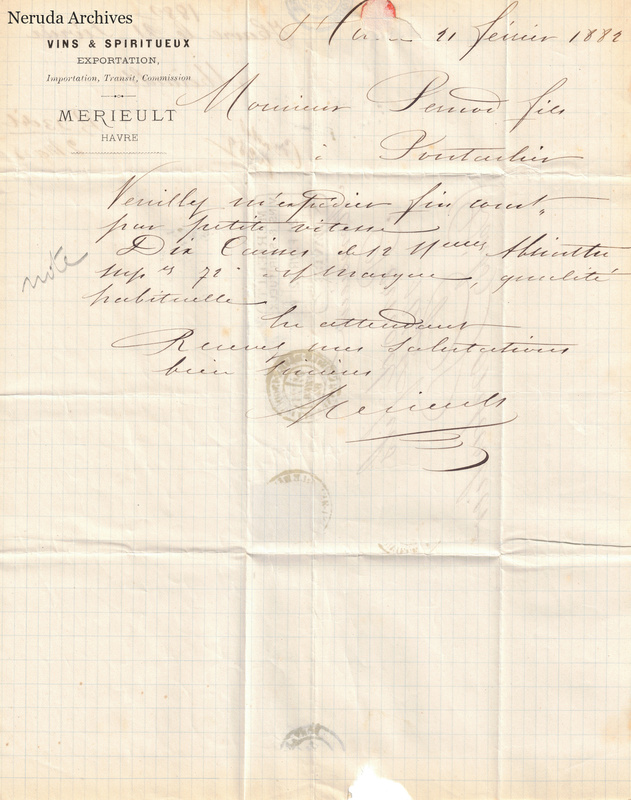 Neruda Archives
VINS & SPIRITUEUX
EXPORTATION,
Importation, Transit, Commission
MERIEULT
HAVRE
Havre 21 février 1882
Monsieur Pernod fils
à Pontarlier
Veuillez m'expédier fin court
par petite vitesse
Dix Caisses de 12 Absinthe
72 marque, qualité
habituelle
note
En attendant
Recevez mes salutations
bien sincères
Merieult